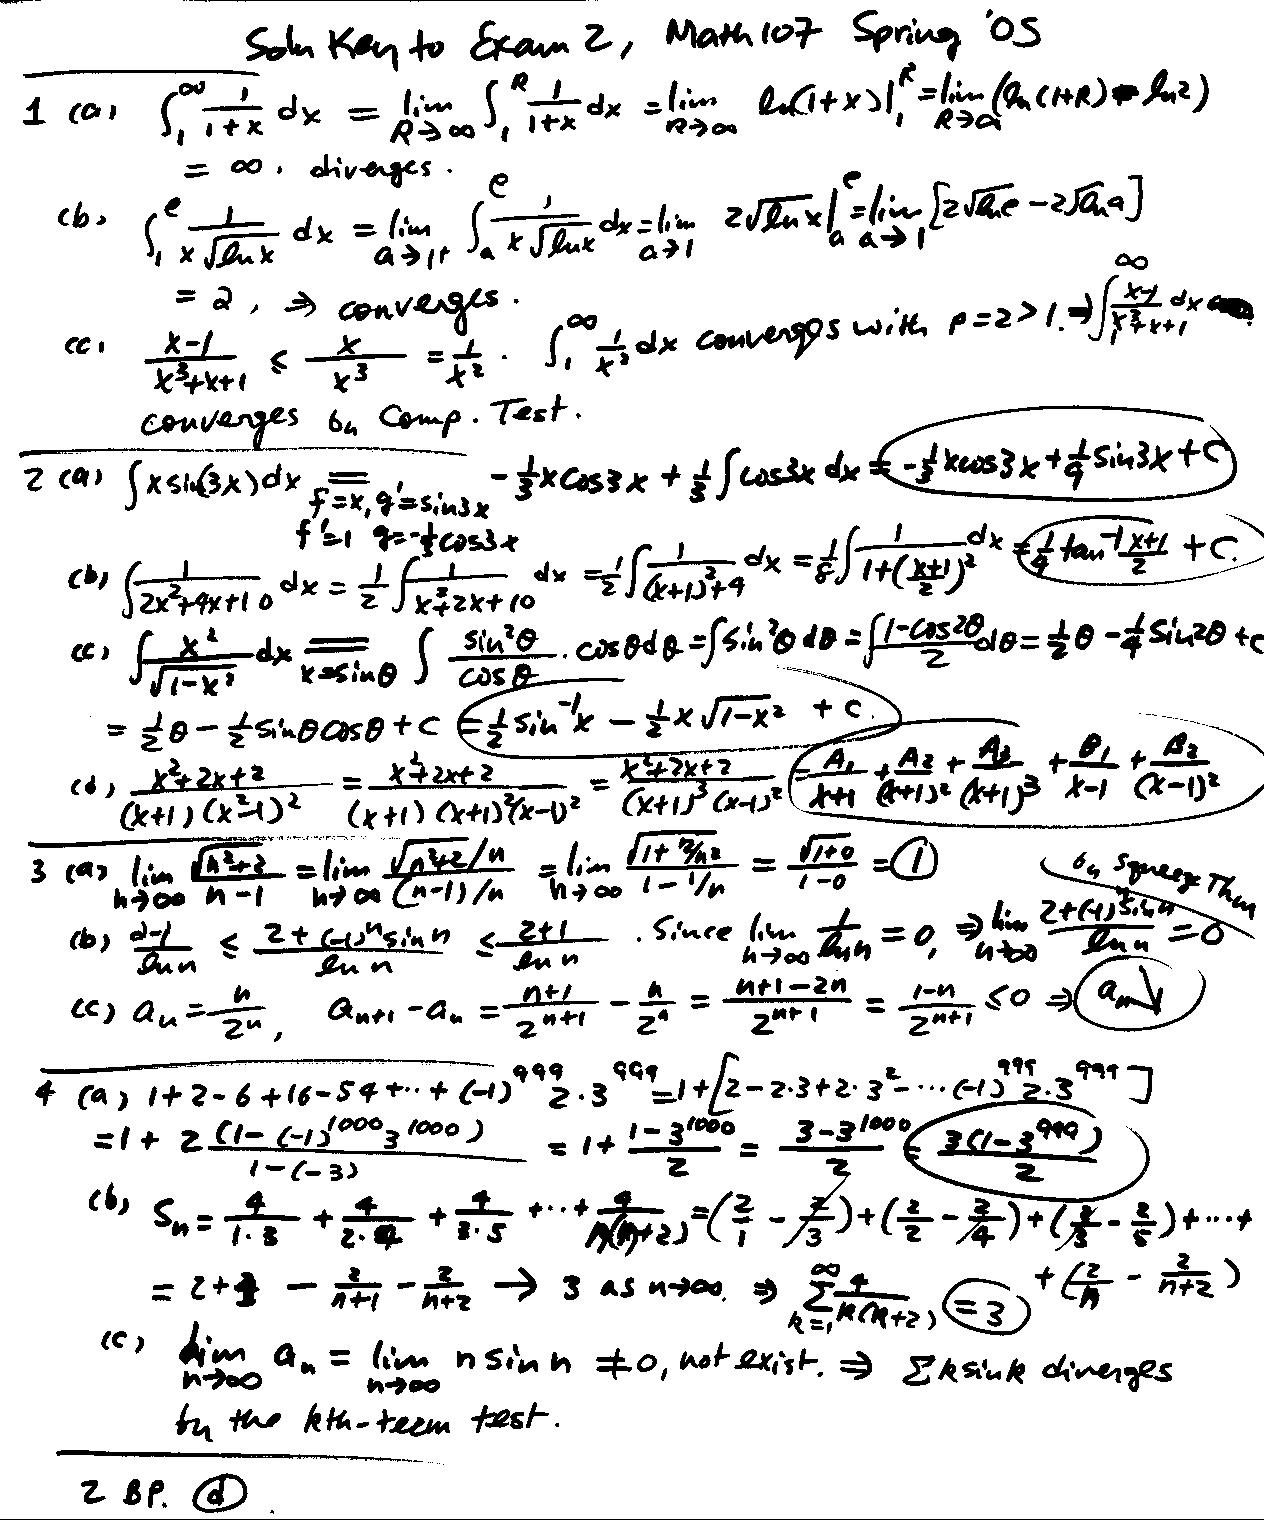 Soln Key to Exam 2, Math 107 Spring '05
1 (a) ∫_1^∞ 1/(1+x) dx = lim_{R→∞} ∫_1^R 1/(1+x) dx = lim_{R→∞} ln(1+x)|_1^R = lim_{R→∞} (ln(1+R) - ln2)
= ∞. diverges.
(b) ∫_1^e 1/(x√(ln x)) dx = lim_{a→1+} ∫_a^e 1/(x√(ln x)) dx = lim_{a→1} 2√(ln x)|_a^e = lim_{a→1} [2√(ln e) - 2√(ln a)]
= 2, ⇒ converges.
(c) (x-1)/(x^3+x+1) ≤ x/x^3 = 1/x^2. ∫_1^∞ 1/x^2 dx converges with p=2>1. ⇒ ∫_1^∞ (x-1)/(x^3+x+1) dx
converges by Comp. Test.
2 (a) ∫x sin(3x)dx = -1/3 x cos3x + 1/3 ∫cos3x dx = -1/3 x cos3x + 1/9 sin3x + C
f=x, g'=sin3x
f'=1 g=-1/3 cos3x
(b) ∫ 1/(2x^2+4x+10) dx = 1/2 ∫ 1/(x^2+2x+10) dx = 1/2 ∫ 1/((x+1)^2+4) dx = 1/8 ∫ 1/(1+((x+1)/2)^2) dx = 1/4 tan^-1 (x+1)/2 + C.
(c) ∫ x^2/√(1-x^2) dx =_{x=sinθ} ∫ sin^2θ/cosθ · cosθdθ = ∫sin^2θ dθ = ∫ (1-cos2θ)/2 dθ = 1/2 θ - 1/4 sin2θ + C
= 1/2 θ - 1/2 sinθcosθ + C = 1/2 sin^-1 x - 1/2 x√(1-x^2) + C.
(d) (x^2+2x+2)/((x+1)(x^2-1)^2) = (x^2+2x+2)/((x+1)(x+1)^2(x-1)^2) = (x^2+2x+2)/((x+1)^3(x-1)^2) = A_1/(x+1) + A_2/(x+1)^2 + A_3/(x+1)^3 + B_1/(x-1) + B_2/(x-1)^2
3 (a) lim_{n→∞} √(n^2+2)/(n-1) = lim_{n→∞} (√(n^2+2)/n)/((n-1)/n) = lim_{n→∞} √(1+2/n^2)/(1-1/n) = √(1+0)/(1-0) = 1
by Squeeze Thm
(b) (2-1)/ln n ≤ (2+(-1)^n sin n)/ln n ≤ (2+1)/ln n. Since lim_{n→∞} 1/ln n = 0, ⇒ lim_{n→∞} (2+(-1)^n sin n)/ln n = 0
(c) a_n = n/2^n, a_{n+1} - a_n = (n+1)/2^{n+1} - n/2^n = (n+1-2n)/2^{n+1} = (1-n)/2^{n+1} ≤ 0 ⇒ a_n ↘
4 (a) 1+2-6+16-54+···+(-1)^999 2·3^999 = 1+[2-2·3+2·3^2-···(-1)^999 2·3^999]
= 1 + 2(1-(-1)^1000 3^1000)/(1-(-3)) = 1 + (1-3^1000)/2 = (3-3^1000)/2 = 3(1-3^999)/2
(b) S_n = 4/(1·3) + 4/(2·4) + 4/(3·5) + ··· + 4/(n(n+2)) = (2/1 - 2/3) + (2/2 - 2/4) + (2/3 - 2/5) + ··· +
+ (2/n - 2/(n+2))
= 2+1 - 2/(n+1) - 2/(n+2) → 3 as n→∞. ⇒ ∑_{k=1}^∞ 4/(k(k+2)) = 3
(c) lim_{n→∞} a_n = lim_{n→∞} n sin n ≠ 0, not exist. ⇒ ∑ k sin k diverges
by the kth-term test.
2 BP. (d)